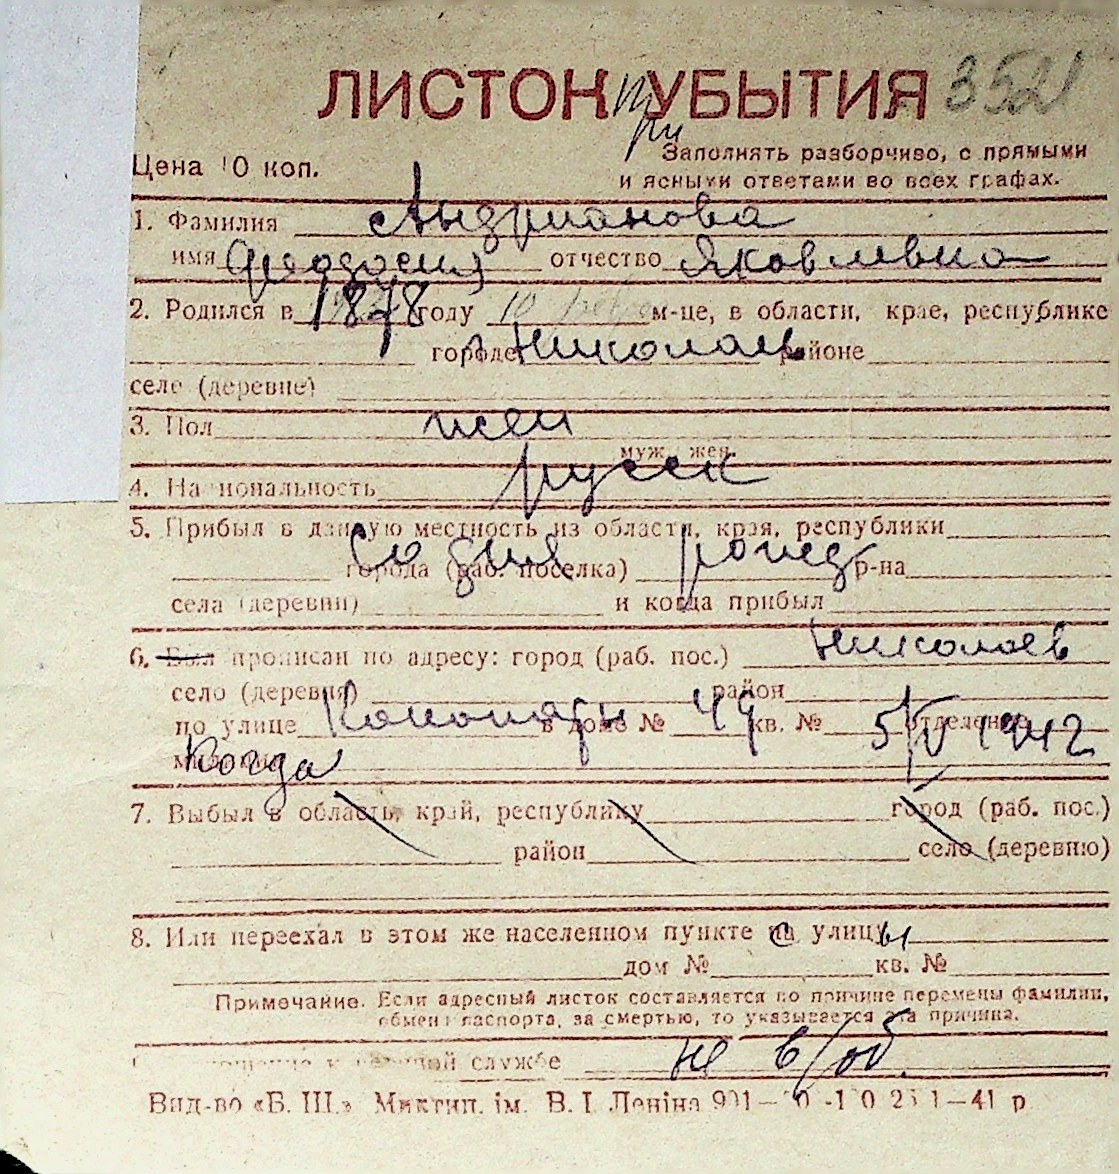 ЛИСТОК УБЫТИЯ 352
при
Цена 10 коп.
Заполнять разборчиво, с прямыми
и ясными ответами во всех графах.
1. Фамилия Андрианова
имя Феодосия отчество Яковлевна
2. Родился в 1878 году 10 м-це, в области, крае, республике
городе г. Николаев районе
село (деревне)
3. Пол жен
муж. жен.
4. Национальность русск
5. Прибыл в данную местность из области, края, республики
Со дня рожд
города (раб. поселка) р-на
села (деревни) и когда прибыл
6. Был прописан по адресу: город (раб. пос.) Николаев
село (деревня) район
по улице в доме № 49 кв. № отделение 5/V 1942
милиции Когда
7. Выбыл в область, край, республику город (раб. пос.)
район село (деревню)
8. Или переехал в этом же населенном пункте с улицы
дом № кв. №
Примечание. Если адресный листок составляется по причине перемены фамилии,
обмена паспорта, за смертью, то указывается эта причина.
службе не в/об.
Вид-во «Б. Ш.» Миктип. ім. В. І. Леніна